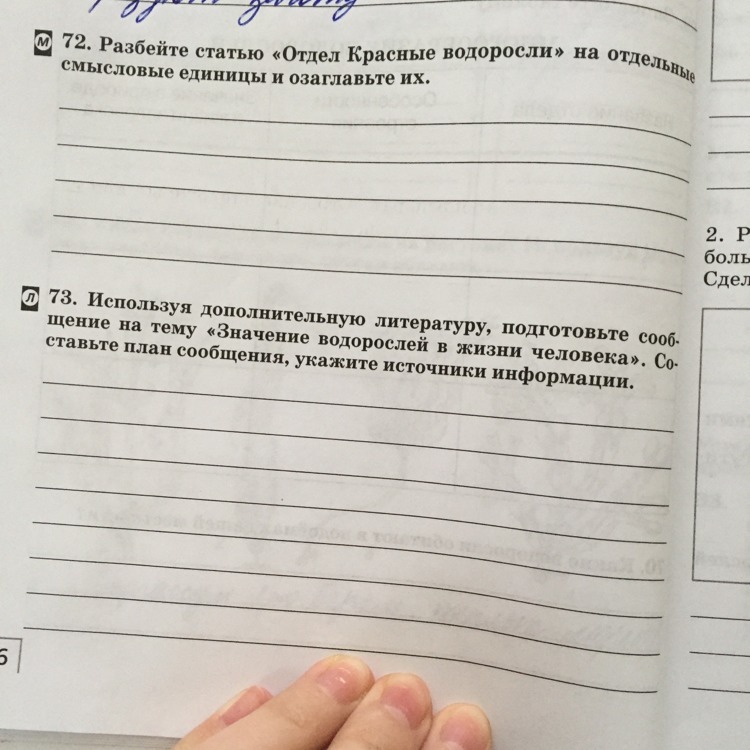 м 72. Разбейте статью «Отдел Красные водоросли» на отдельные
смысловые единицы и озаглавьте их.
л 73. Используя дополнительную литературу, подготовьте сооб-
щение на тему «Значение водорослей в жизни человека». Со-
ставьте план сообщения, укажите источники информации.
6
2. Р
боль
Сдел